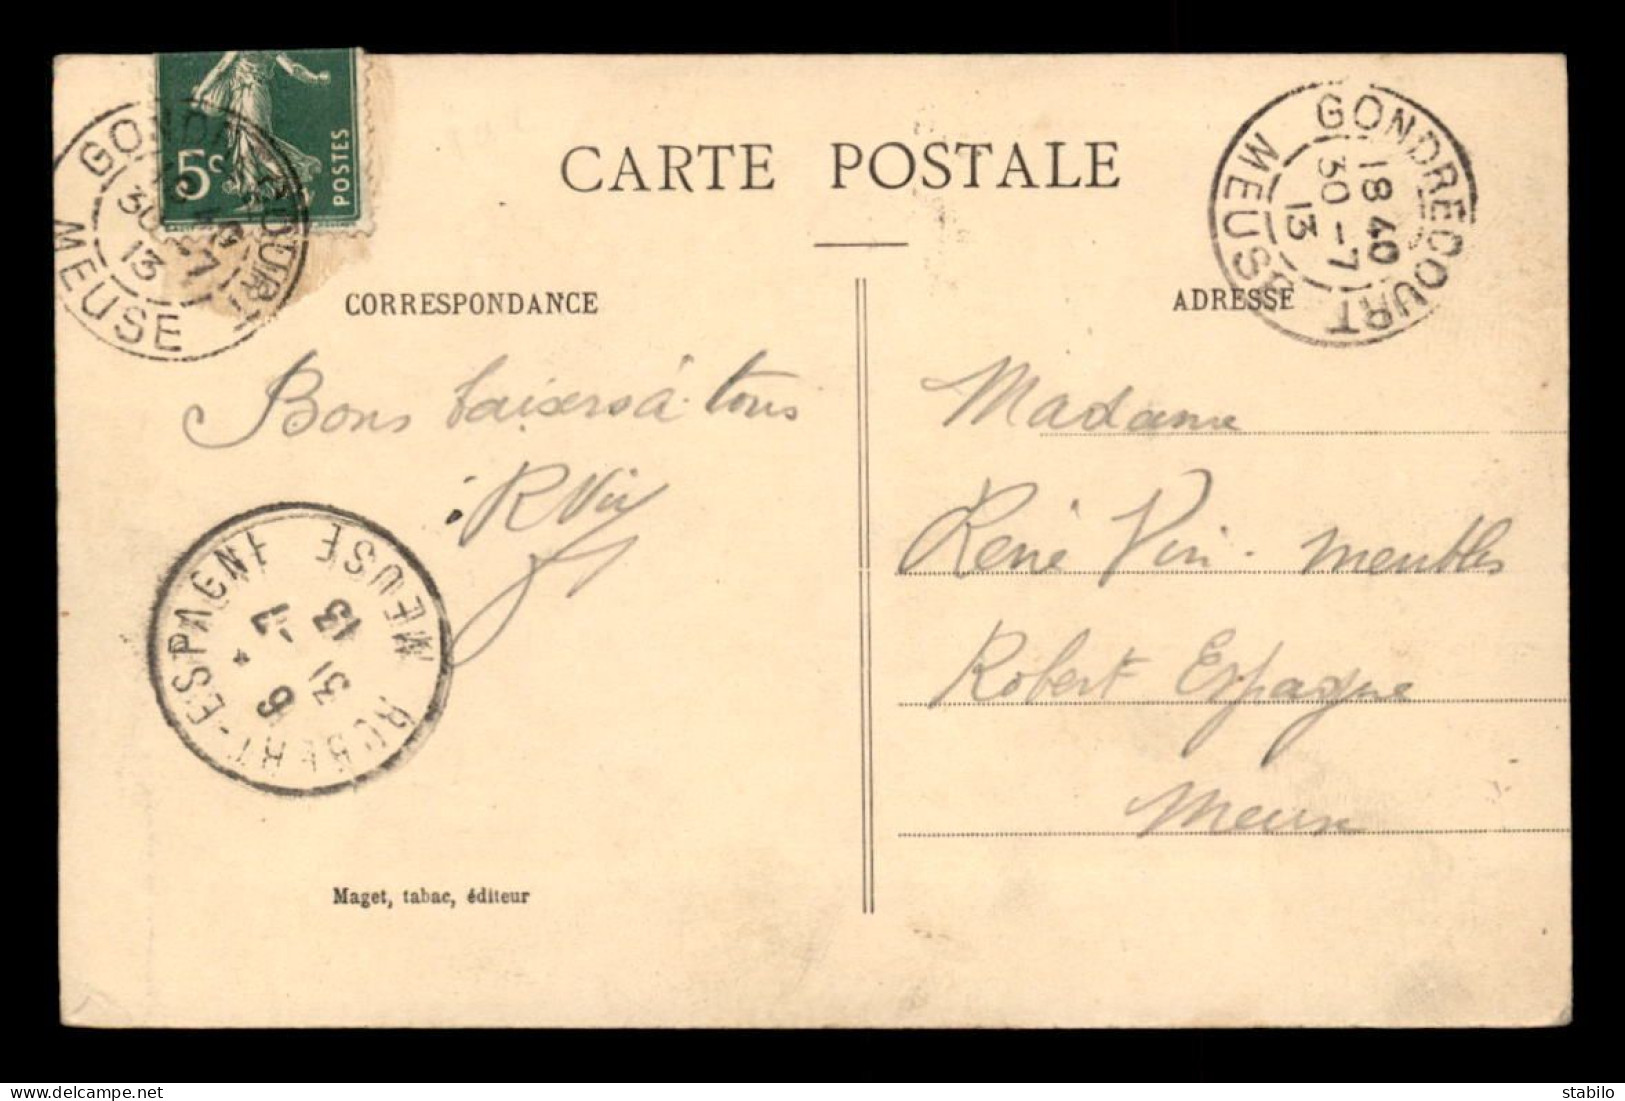 5c
POSTES
GONDRECOURT
MEUSE
30 -7
13
CARTE POSTALE
GONDRECOURT
18 40
30 -7
13
MEUSE
CORRESPONDANCE
ADRESSE
Bons baisers à tous
R Vin
Madame
René Vin. meubles
Robert Espagne
Meuse
ROBERT-ESPAGNE
6
31 -7
13
MEUSE
Maget, tabac, éditeur
stabilo